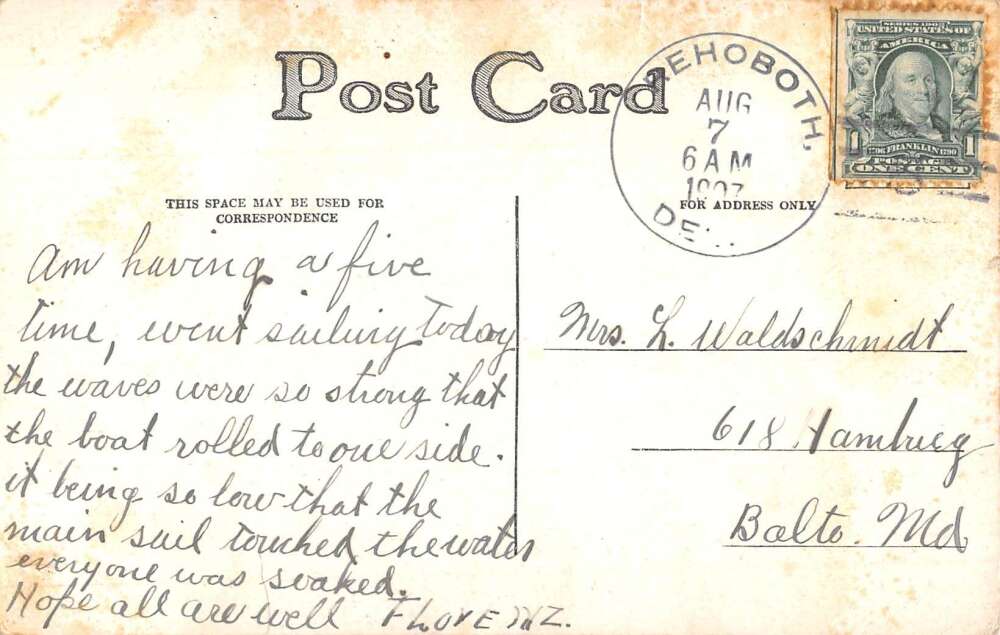 Post Card
REHOBOTH,
AUG
7
6 AM
1907
DEL.
SERIES 1902
UNITED STATES OF
AMERICA
1 1706 FRANKLIN 1790 1
POSTAGE
ONE CENT
THIS SPACE MAY BE USED FOR
CORRESPONDENCE
FOR ADDRESS ONLY
Am having a fine
time, went sailing today
the waves were so strong that
the boat rolled to one side.
it being so low that the
main sail touched the water
everyone was soaked.
Hope all are well
Mrs. L. Waldschmidt
618 Hamburg
Balto. Md